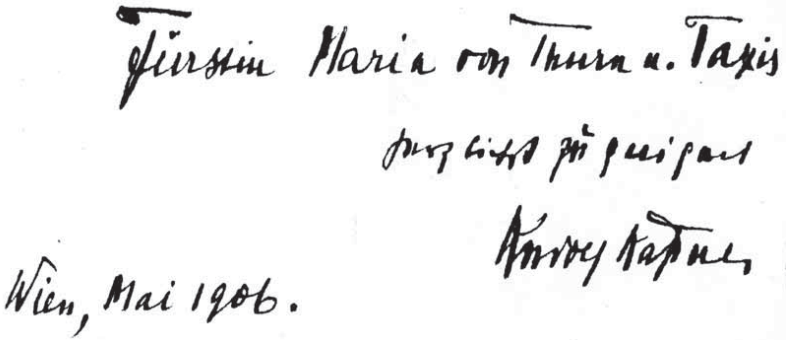 Fürstin Maria von Thurn u. Taxis
herzlichst zugeeignet
Rudolf Kassner
Wien, Mai 1906.